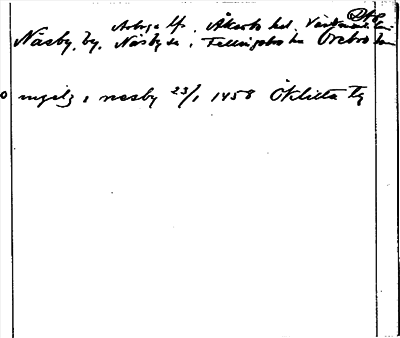 Arboga lfs, Åkerbo hd, Västmanl. län
Näsby, by, Näsby sn, Fellingsbro hd Örebro län
o ingelz i næsby 23/1 1458